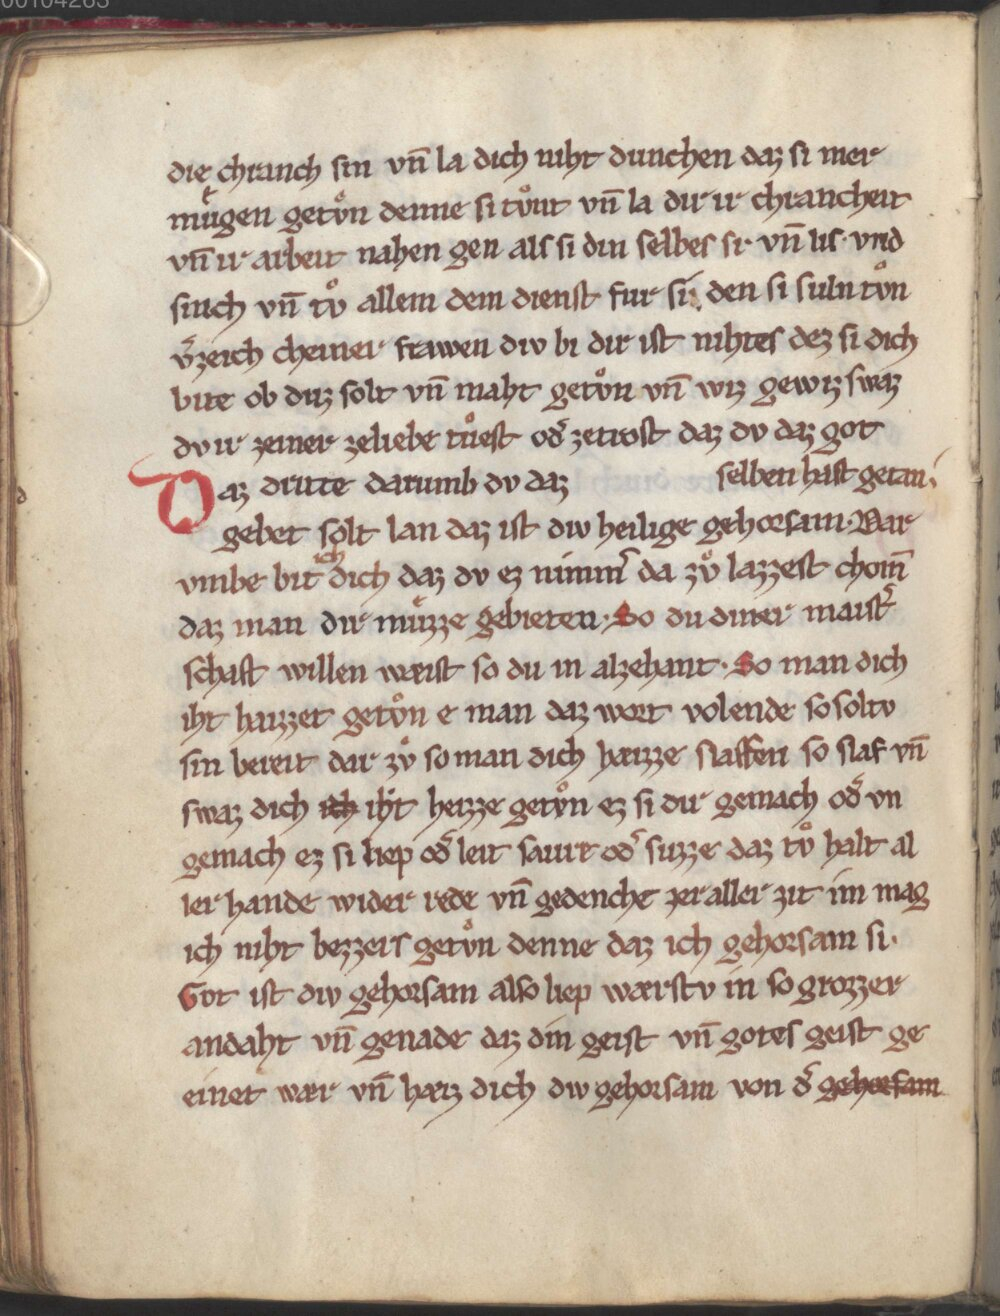 00104265
die chranch sin vn̄ la dich niht dunchen daz si mer
mu̍gen getvͦn denne si tvͦnt vn̄ la dir ir chrancheit
vn̄ ir arbeit nahen gen als si din selbes si· vn̄ lis· vnd
siuch vn̄ tvͦ allem dem dienst fur si· den si suln tvͦn
v̄zeich cheiner frawen div bi dir ist nihtes dez si dich
bite ob duz solt vn̄ maht getvͦn vn̄ wiz gewiz swaz
dv ir zeiner zeliebe tuͤest od̄ zetrost daz dv daz got
selben hast getan·
Daz dritte darumb dv daz
gebet solt lan daz ist div heilige gehorsam· Dar
vmbe bit ich dich daz dv ez nimm̄ da zvͦ lazzest chom̄
daz man dir muͤzze gebieten· So du diner maist̄
schaft willen waist so du in alzehant· So man dich
iht haizzet getvͦn e man daz wort volende so soltv
sin bereit dar zvͦ so man dich haizze slaffen so slaf vn̄
swaz dich ich iht heizze getvͦn ez si dir gemach od̄ vn
gemach ez si liep od̄ leit saur od̄ suzze daz tvͦ halt al
ler hande wider rede vn̄ gedencht zer aller zit im mag
ich niht bezzers getvͦn denne daz ich gehorsam si·
Got ist div gehorsam also liep wærstv in so grozzer
andaht vn̄ genade daz din geist vn̄ gotes geist ge
einet wær vn̄ haiz dich div gehorsam von d̄ gehorsam